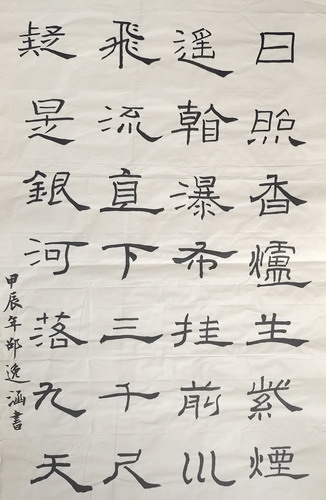 日照香爐生紫煙
遙看瀑布挂前川
飛流直下三千尺
疑是銀河落九天
甲辰年邵逸涵書